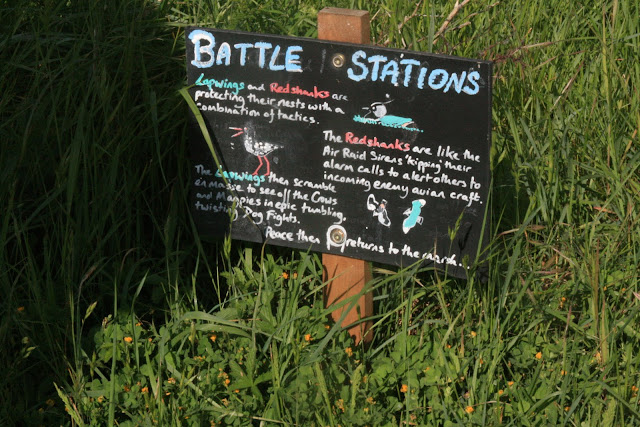 BATTLE STATIONS
Lapwings and Redshanks are
protecting their nests with a
combination of tactics.
The Redshanks are like the
Air Raid Sirens 'kipping' their
alarm calls to alert others to
incoming enemy avian craft.
The Lapwings then scramble
en masse to see off the Crows
and Magpies in epic tumbling,
twisting Dog Fights.
Peace then returns to the marsh.